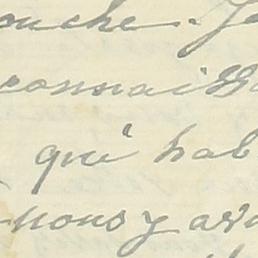 ouche. Je
connaiss
qui hab
nous y av